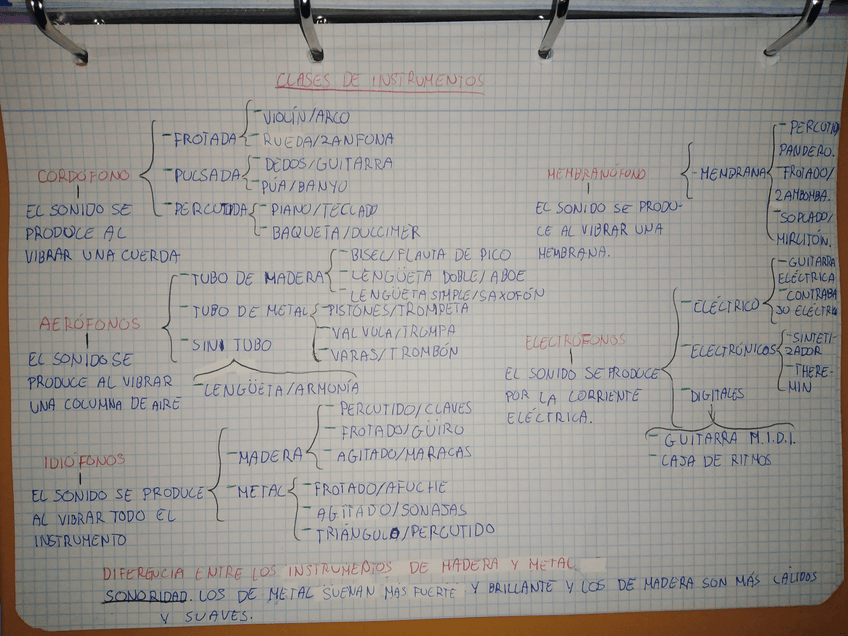 CLASES DE INSTRUMENTOS
CORDÓFONO
EL SONIDO SE
PRODUCE AL
VIBRAR UNA CUERDA
- FROTADA
- VIOLÍN/ARCO
- RUEDA/ZANFONA
- PULSADA
- DEDOS/GUITARRA
- PÚA/BANYO
- PERCUTIDA
- PIANO/TECLADO
- BAQUETA/DULCIMER
MEMBRANÓFONO
EL SONIDO SE PRODU-
CE AL VIBRAR UNA
MEMBRANA.
- MENDRANA
- PERCUTIDO
PANDERO.
- FROTADO/
ZAMBOMBA.
- SOPLADO/
MIRLITÓN.
AERÓFONOS
EL SONIDO SE
PRODUCE AL VIBRAR
UNA COLUMNA DE AIRE
- TUBO DE MADERA
- BISEL/FLAUTA DE PICO
- LENGÜETA DOBLE/ABOE
- LENGÜETA SIMPLE/SAXOFÓN
- TUBO DE METAL
- PISTONES/TROMPETA
- VALVULA/TROMPA
- VARAS/TROMBÓN
- SIN TUBO
- LENGÜETA/ARMONÍA
ELECTROFONOS
EL SONIDO SE PRODUCE
POR LA CORRIENTE
ELÉCTRICA.
- ELÉCTRICO
- GUITARRA
ELÉCTRICA
- CONTRABA
JO ELÉCTRIC
- ELECTRÓNICOS
- SINTETI-
ZADOR
- THERE-
MIN
- DIGITALES
- GUITARRA M.I.D.I.
- CAJA DE RITMOS
IDIÓFONOS
EL SONIDO SE PRODUCE
AL VIBRAR TODO EL
INSTRUMENTO
- MADERA
- PERCUTIDO/CLAVES
- FROTADO/GÜIRO
- AGITADO/MARACAS
- METAL
- FROTADO/AFUCHE
- AGITADO/SONAJAS
- TRIÁNGULO/PERCUTIDO
DIFERENCIA ENTRE LOS INSTRUMENTOS DE MADERA Y METAL
SONORIDAD. LOS DE METAL SUENAN MÁS FUERTE Y BRILLANTE Y LOS DE MADERA SON MÁS CÁLIDOS
Y SUAVES.